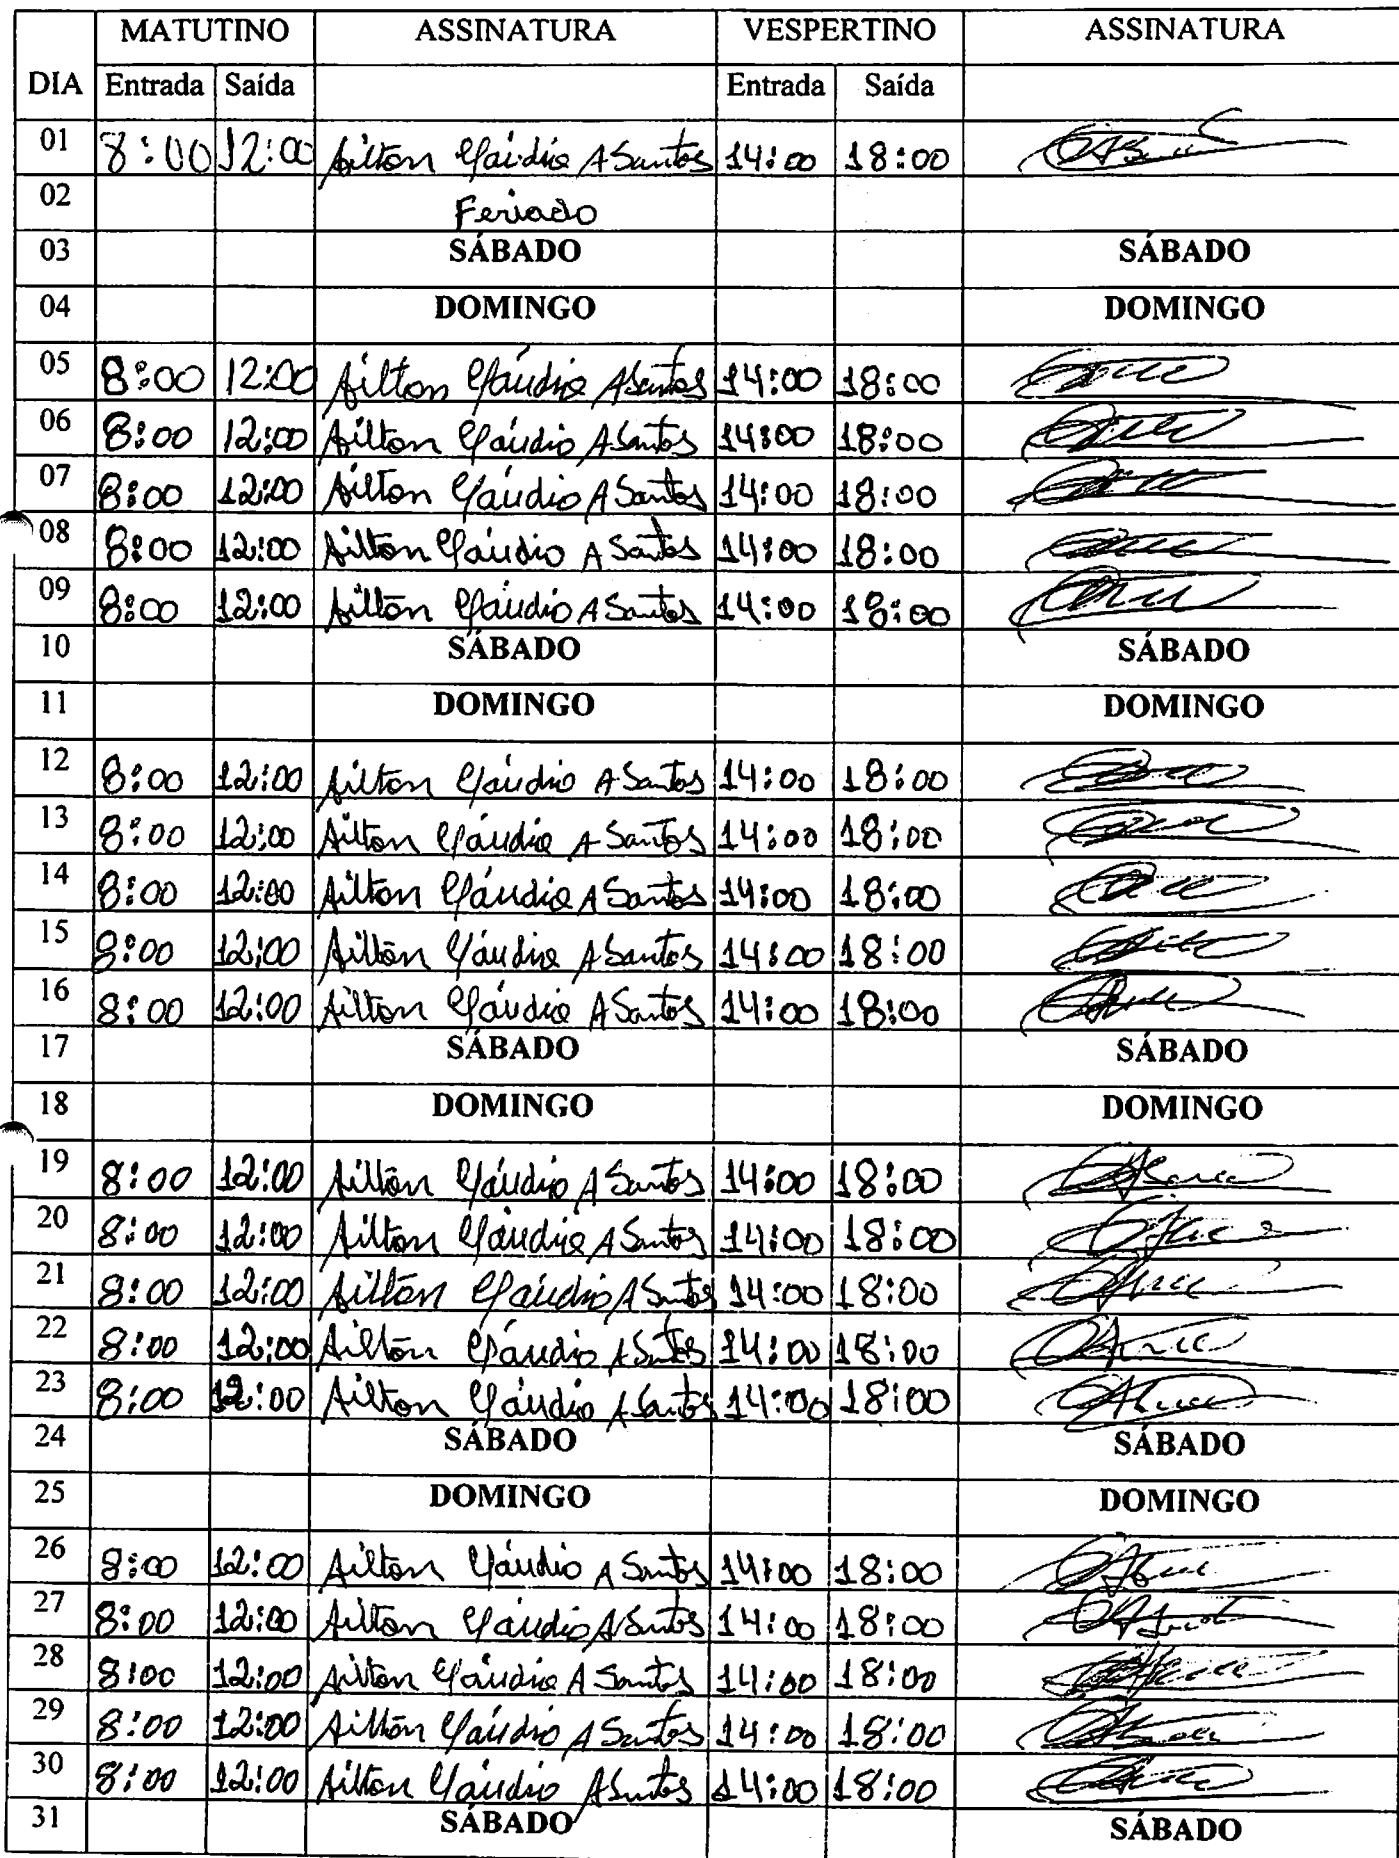 MATUTINO ASSINATURA VESPERTINO ASSINATURA
DIA Entrada Saída Entrada Saída
01 8:00 12:00 Ailton Cláudio A Santos 14:00 18:00
02 Feriado
03 SÁBADO SÁBADO
04 DOMINGO DOMINGO
05 8:00 12:00 Ailton Cláudio A Santos 14:00 18:00
06 8:00 12:00 Ailton Cláudio A Santos 14:00 18:00
07 8:00 12:00 Ailton Cláudio A Santos 14:00 18:00
08 8:00 12:00 Ailton Cláudio A Santos 14:00 18:00
09 8:00 12:00 Ailton Cláudio A Santos 14:00 18:00
10 SÁBADO SÁBADO
11 DOMINGO DOMINGO
12 8:00 12:00 Ailton Cláudio A Santos 14:00 18:00
13 8:00 12:00 Ailton Cláudio A Santos 14:00 18:00
14 8:00 12:00 Ailton Cláudio A Santos 14:00 18:00
15 8:00 12:00 Ailton Cláudio A Santos 14:00 18:00
16 8:00 12:00 Ailton Cláudio A Santos 14:00 18:00
17 SÁBADO SÁBADO
18 DOMINGO DOMINGO
19 8:00 12:00 Ailton Cláudio A Santos 14:00 18:00
20 8:00 12:00 Ailton Cláudio A Santos 14:00 18:00
21 8:00 12:00 Ailton Cláudio A Santos 14:00 18:00
22 8:00 12:00 Ailton Cláudio A Santos 14:00 18:00
23 8:00 12:00 Ailton Cláudio A Santos 14:00 18:00
24 SÁBADO SÁBADO
25 DOMINGO DOMINGO
26 8:00 12:00 Ailton Cláudio A Santos 14:00 18:00
27 8:00 12:00 Ailton Cláudio A Santos 14:00 18:00
28 8:00 12:00 Ailton Cláudio A Santos 14:00 18:00
29 8:00 12:00 Ailton Cláudio A Santos 14:00 18:00
30 8:00 12:00 Ailton Cláudio A Santos 14:00 18:00
31 SÁBADO SÁBADO